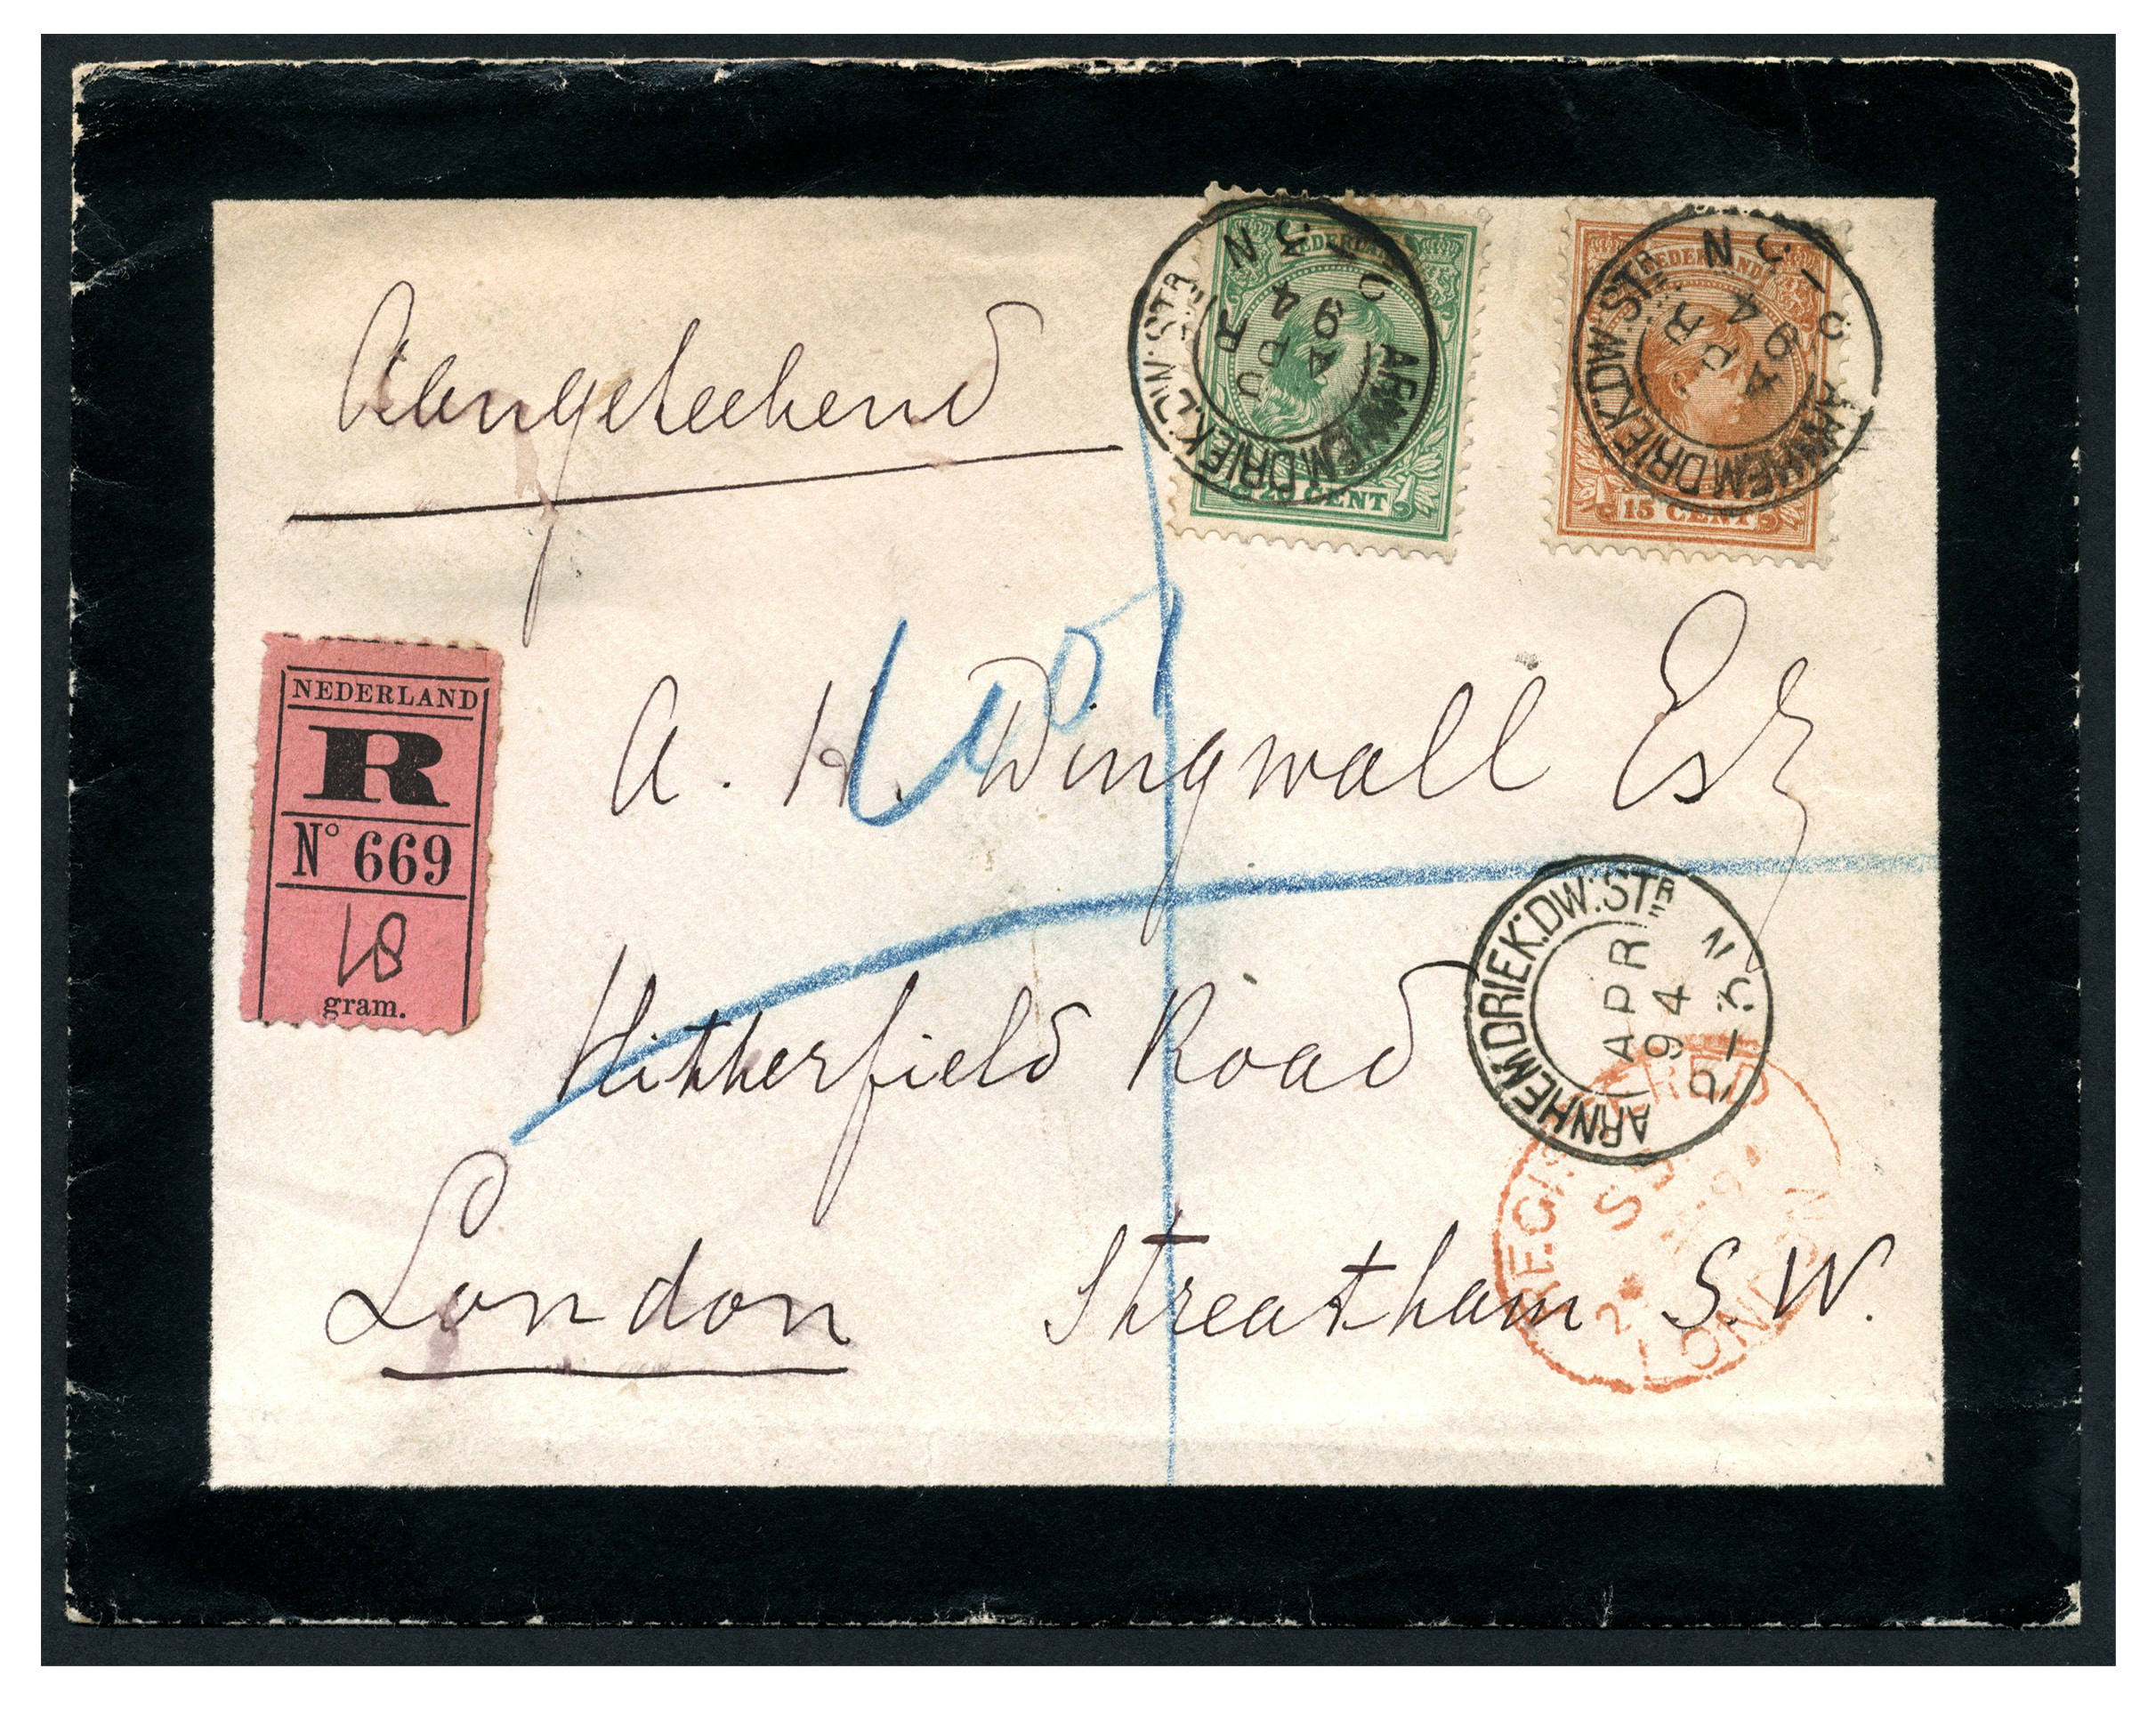 Aangeteekend
NEDERLAND
20 CENT
ARNHEM.DRIEK:DW:STR
APR
94
3 N
NEDERLAND
15 CENT
ARNHEM.DRIEK:DW:STR
APR
94
2-3 N
NEDERLAND
R
No 669
18
gram.
A. H. Dingwall Esq
Hitherfield Road
ARNHEM.DRIEK:DW:STR
APR
94
2-3 N
REGISTERED
LONDON
London Streatham S.W.